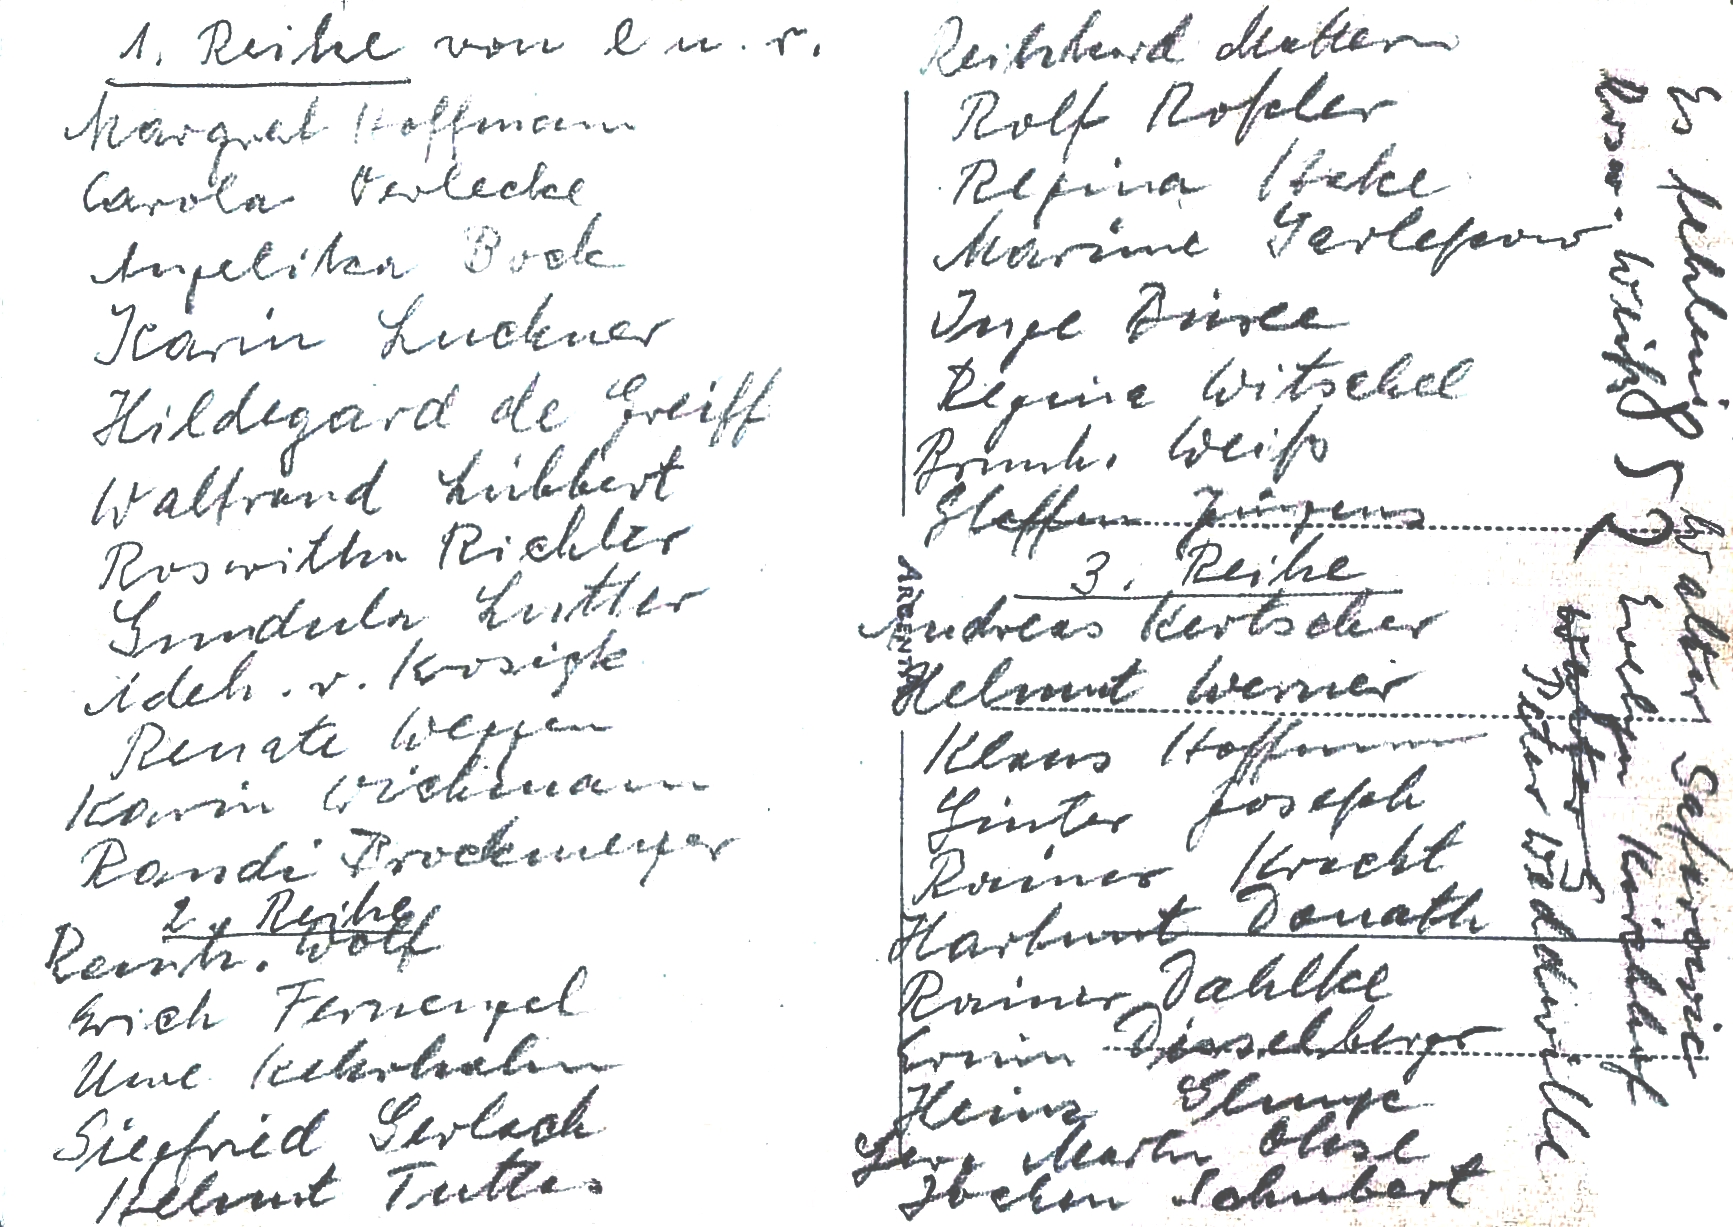 1. Reihe von l n. r.
Margret Hoffmann
Carola Verlecke
Angelika Bock
Karin Luckner
Hildegard de Greiff
Waltraud Lübbert
Roswitha Richter
Gundula Lutter
Adeh. v. Krosigk
Renate Weggen
Karin Wichmann
Randi Brockmeyer
2. Reihe
Wolf
Erich Fernengel
Uwe Kekerhahn
Siegfried Gerlach
Helmut Tuttas
Reinhard Mattern
Rolf Roßler
Regina Hake
Garlepow
Inge
Regina Witschel
Brunh. Weiß
Steffen Jürgens
3. Reihe
Andreas Kertscher
Helmut Werner
Klaus Hoffmann
Günter Joseph
Rainer Kracht
Hartmut Donath
Rainer Dahlke
Erwin Dieselberger
Heinz
Ger. Martin Ohse
Jochen Schubert
ARGENTA
Es fehlen:
Rosw. Weiß
Walter Safarovic
Evelyn Kirchhof
Walter
Peter Waldwille